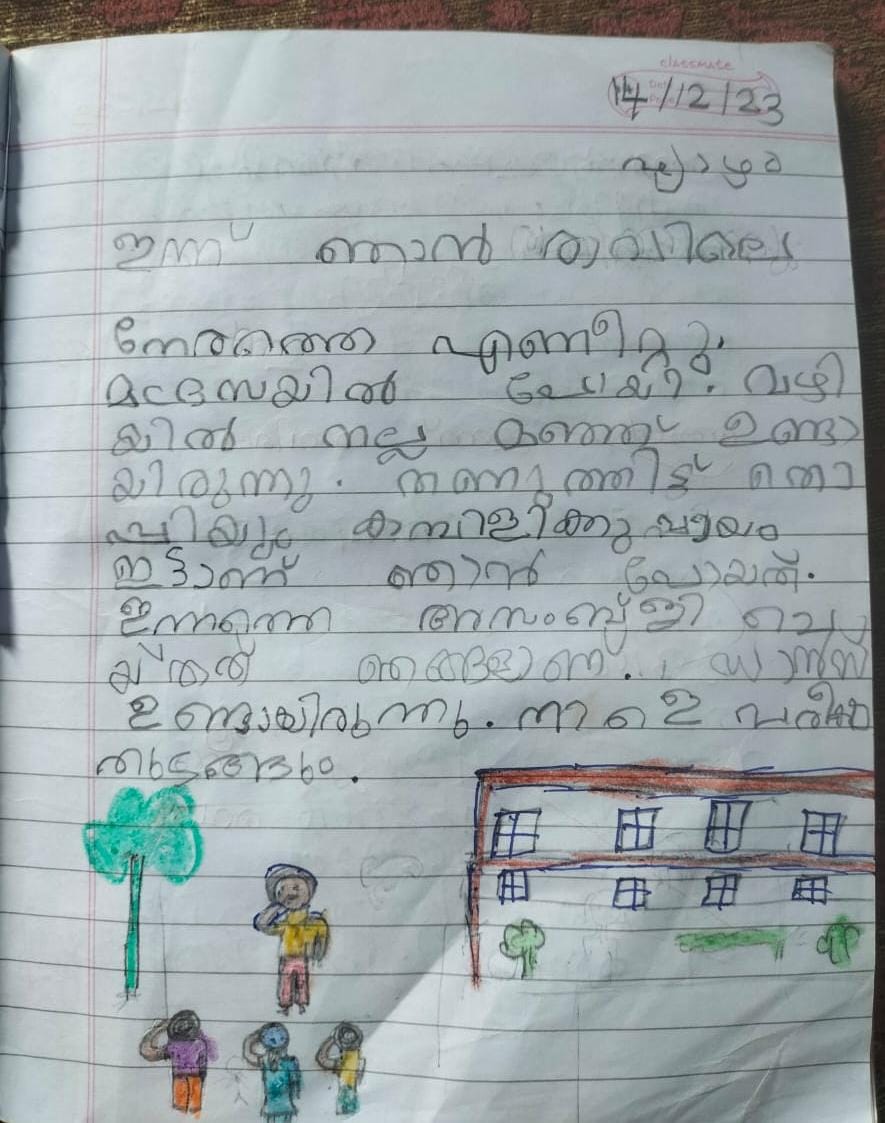 classmate
14/12/23
വ്യാഴം
ഇന്ന് ഞാൻ രാവിലെ
നേരത്തെ എണീറ്റു.
മദ്രസയിൽ പോയി. വഴി
യിൽ നല്ല മഞ്ഞ് ഉണ്ടാ
യിരുന്നു. തണുത്തിട്ട് തൊ
പ്പിയും കമ്പിളിക്കുപ്പായം
ഇട്ടാണ് ഞാൻ പോയത്.
ഇന്നത്തെ അസംബ്ളി ചെ
യ്തത് ഞങ്ങളാണ്. ഡാൻസ്
ഉണ്ടായിരുന്നു. നാളെ പരീക്ഷ
തുടങ്ങും.